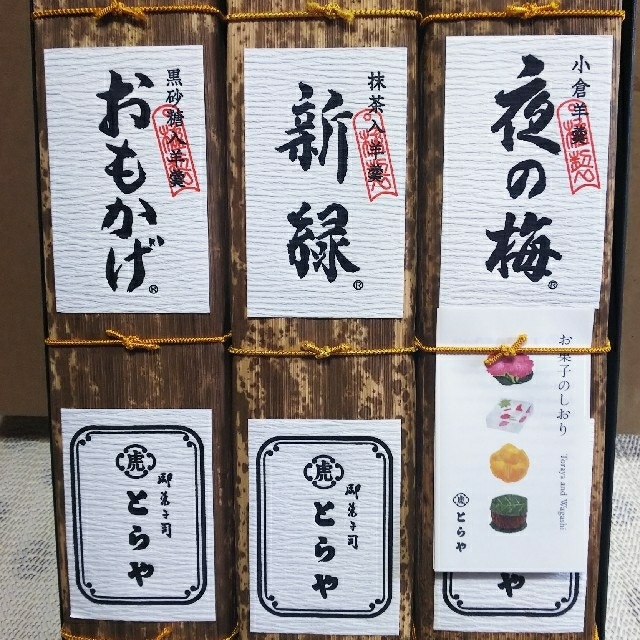 小倉羊羹
夜の梅®
抹茶入羊羹
新緑®
黒砂糖入羊羹
おもかげ®
お菓子のしおり
Toraya and Wagashi
虎 とらや
や
御菓子司
虎
とらや
御菓子司
虎
とらや